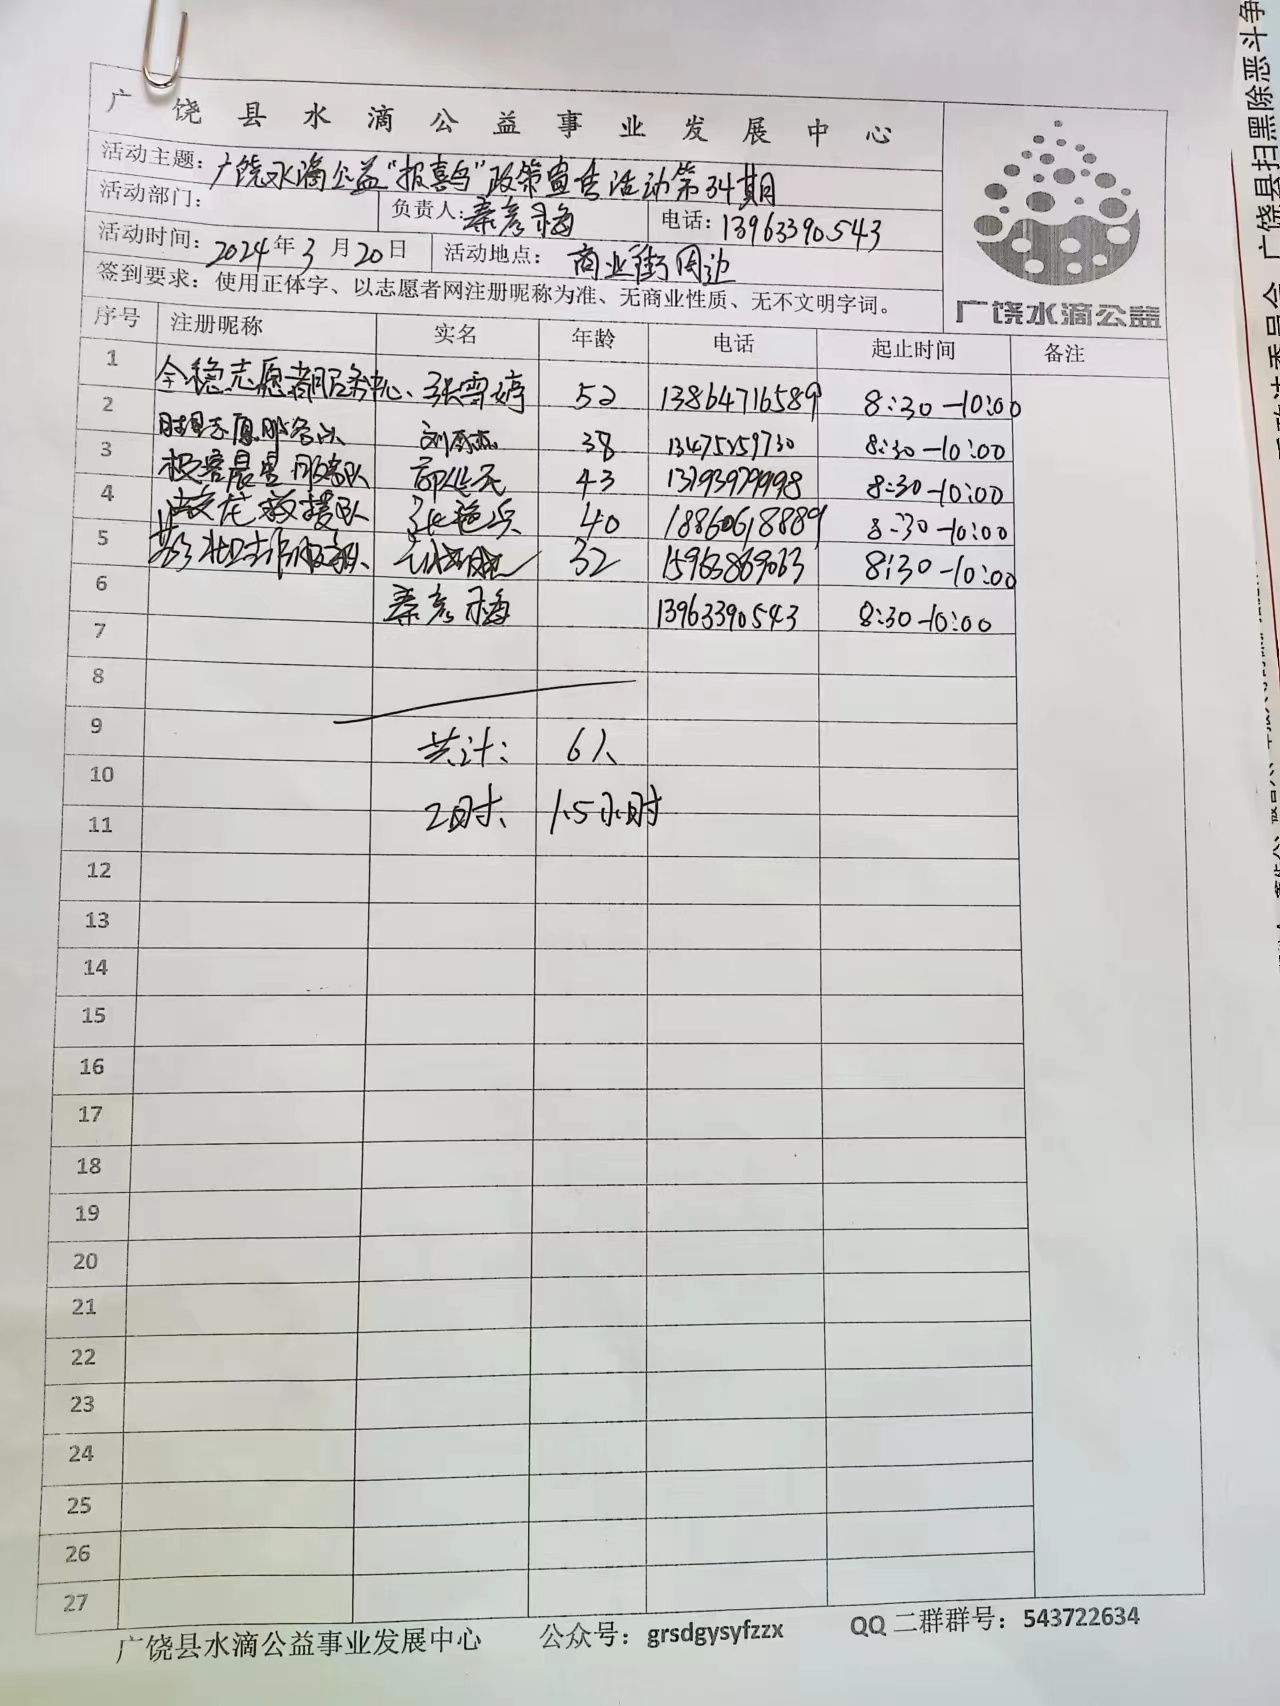 广饶县水滴公益事业发展中心
活动主题：广饶水滴公益"报喜鸟"政策宣传活动第34期
活动部门： 负责人：秦彦海 电话：13963390543
活动时间：2024年3月20日 活动地点：商业街周边
签到要求：使用正体字、以志愿者网注册昵称为准、无商业性质、无不文明字词。
广饶水滴公益
序号 注册昵称 实名 年龄 电话 起止时间 备注
1 全稳志愿者服务中心、张雪婷 52 13864716589 8:30-10:00
2 志愿服务队 38 13475259730 8:30-10:00
3 晨星服务队 43 13793979998 8:30-10:00
4 救援队 40 18860618889 8:30-10:00
5 32 15963869063 8:30-10:00
6 秦彦海 13963390543 8:30-10:00
7
8
9 共计： 6人
10
11 2时、 1.5小时
12
13
14
15
16
17
18
19
20
21
22
23
24
25
26
27
广饶县水滴公益事业发展中心 公众号：grsdgysyfzzx QQ二群群号：543722634
广饶县扫黑除恶斗争